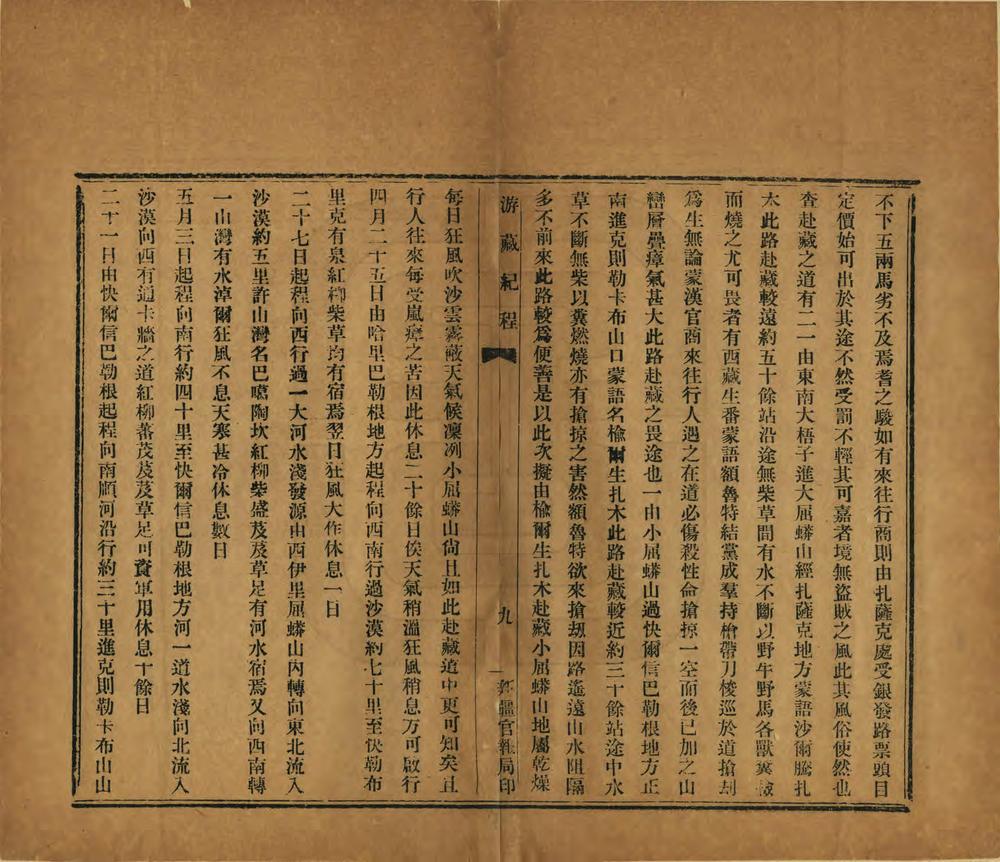 不下五兩馬劣不及焉耆之駿如有來往行商則由扎薩克處受銀發路票頭目
定價始可出於其途不然受罰不輕其可嘉者境無盜賊之風此其風俗使然也
查赴藏之道有二一由東南大梧子進大屈蟒山經扎薩克地方蒙語沙爾騰扎
木此路赴藏較遠約五十餘站沿途無柴草間有水不斷以野牛野馬各獸糞
而燒之尤可畏者有西藏生番蒙語額魯特結黨成羣持槍帶刀悛巡於道搶刦
爲生無論蒙漢官商來往行人遇之在道必傷殺性命搶掠一空而後已加之山
巒層疊瘴氣甚大此路赴藏之畏途也一由小屈蟒山過快爾信巴勒根地方正
南進克則勒卡布山口蒙語名楡爾生扎木此路赴藏較近約三十餘站途中水
草不斷無柴以糞燃燒亦有搶掠之害然額魯特欲來搶刼因路遙遠山水阻隔
多不前來此路較爲便善是以此次擬由楡爾生扎木赴藏小屈蟒山地屬乾燥
游藏紀程 九 新疆官報局印
每日狂風吹沙雲霧蔽天氣候凜冽小屈蟒山尙且如此赴藏道中更可知矣且
行人往來每受嵐瘴之苦因此休息二十餘日俟天氣稍溫狂風稍息方可啟行
四月二十五日由哈里巴勒根地方起程向西南行過沙漠約七十里至快勒布
里克有泉紅柳柴草均有宿焉翌日狂風大作休息一日
二十七日起程向西行過一大河水淺發源由西伊里屈蟒山內轉向東北流入
沙漠約五里許山灣名巴噶陶坎紅柳柴盛芨芨草足有河水宿焉又向西南轉
一山灣有水淖爾狂風不息天寒甚冷休息數日
五月三日起程向南行約四十里至快爾信巴勒根地方河一道水淺向北流入
沙漠向西有通卡牆之道紅柳蕃茂芨芨草足可資軍用休息十餘日
二十一日由快爾信巴勒根起程向南順河沿行約三十里進克則勒卡布山山